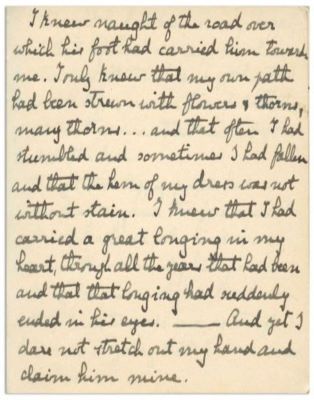 I knew naught of the road over
which his foot had carried him toward
me. I only knew that my own path
had been strewn with flowers & thorns,
many thorns... and that often I had
stumbled and sometimes I had fallen
and that the hem of my dress was not
without stain. I knew that I had
carried a great longing in my
heart, through all the years that had been
and that that longing had suddenly
ended in his eyes. —— And yet I
dare not stretch out my hand and
claim him mine.